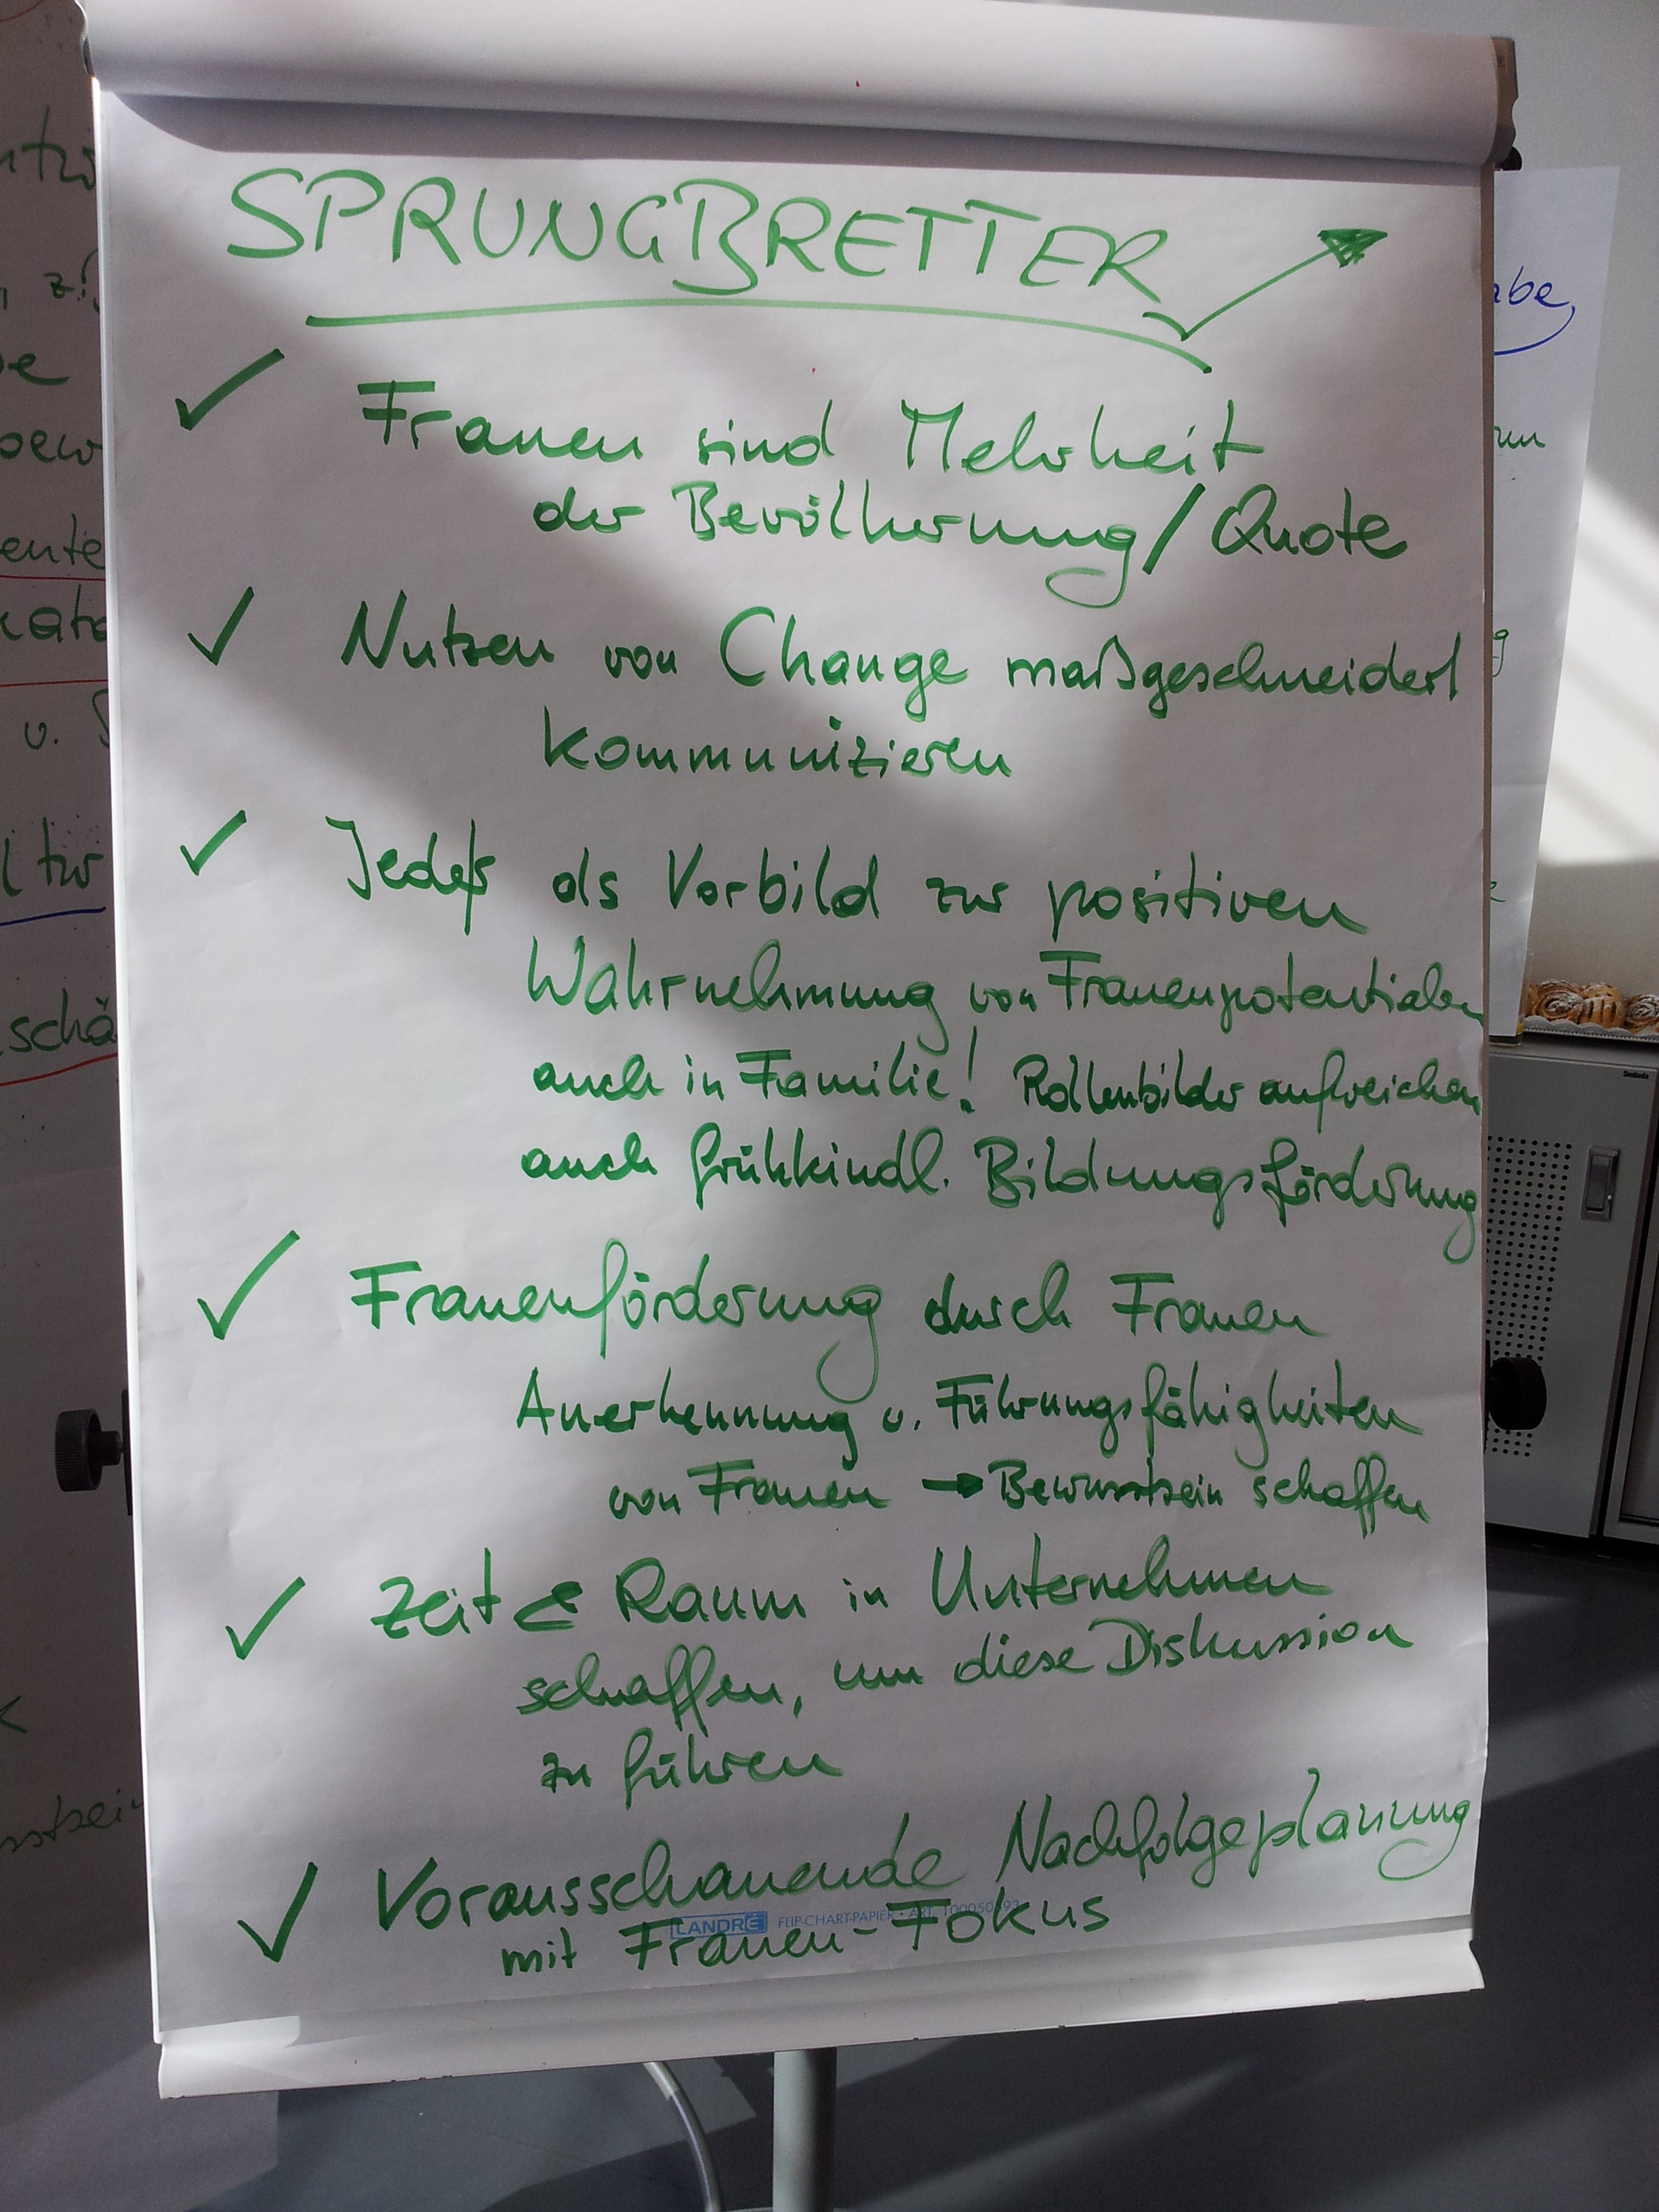 SPRUNGBRETTER
✓ Frauen sind Mehrheit
der Bevölkerung / Quote
✓ Nutzen von Change maßgeschneidert
kommunizieren
✓ als Vorbild zur positiven
Wahrnehmung von Frauenpotentialen
auch in Familie! Rollenbilder aufweichen
auch frühkindl. Bildungsförderung
✓ Frauenförderung durch Frauen
Anerkennung u. Führungsfähigkeiten
von Frauen → Bewusstsein schaffen
✓ Zeit & Raum in Unternehmen
schaffen, um diese Diskussion
zu führen
✓ Vorausschauende Nachfolgeplanung
LANDRÉ FLIP-CHART-PAPIER • ART.
mit Frauen-Fokus
abe
ente
schä
u.